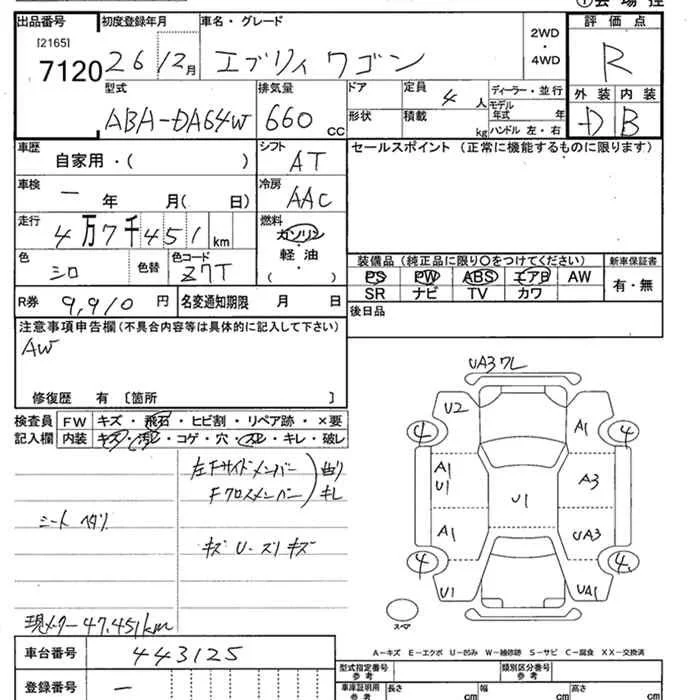 ①会場控
出品番号 初度登録年月 車名・グレード 2WD・4WD 評価点
[2165]
7120 26 12月 エブリィ ワゴン R
型式 排気量 ドア 定員 4人 ディーラー・並行 外装 内装
ABA-DA64W 660 cc 形状 積載 kg モデル年式 年 ハンドル 左・右 D B
車歴 シフト セールスポイント (正常に機能するものに限ります)
自家用・( ) AT
車検 冷房
一 年 月( 日) AAC
走行 燃料
4万7千451km ガソリン
軽油
( )
色 色替 色コード 装備品(純正品に限り○をつけてください) 新車保証書
シロ Z7T PS PW ABS エアB AW 有・無
SR ナビ TV カワ
R券 9,910円 名変通知期限 月 日 後日品
注意事項申告欄(不具合内容等は具体的に記入して下さい)
AW
修復歴 有 〔箇所 〕
検査員 FW キズ・飛石・ヒビ割・リペア跡・×要
記入欄 内装 キズ・汚レ・コゲ・穴・スレ・キレ・破レ
左Fサイドメンバー 曲り
Fクロスメンバー キレ
シート ヘタリ
キズ U・スリキズ
現メーター 47,451km
UA3ワレ
U2
4 A1 4
A1 U1 A3
U1
A1 UA3
4 4
U1 UA1
スマ
A-キズ E-エクボ U-凹み W-補修跡 S-サビ C-腐食 XX-交換済
車台番号 443125 型式指定番号 参考 類別区分番号 参考
登録番号 — 車庫証明用 参考 長さ cm 幅 cm 高さ cm